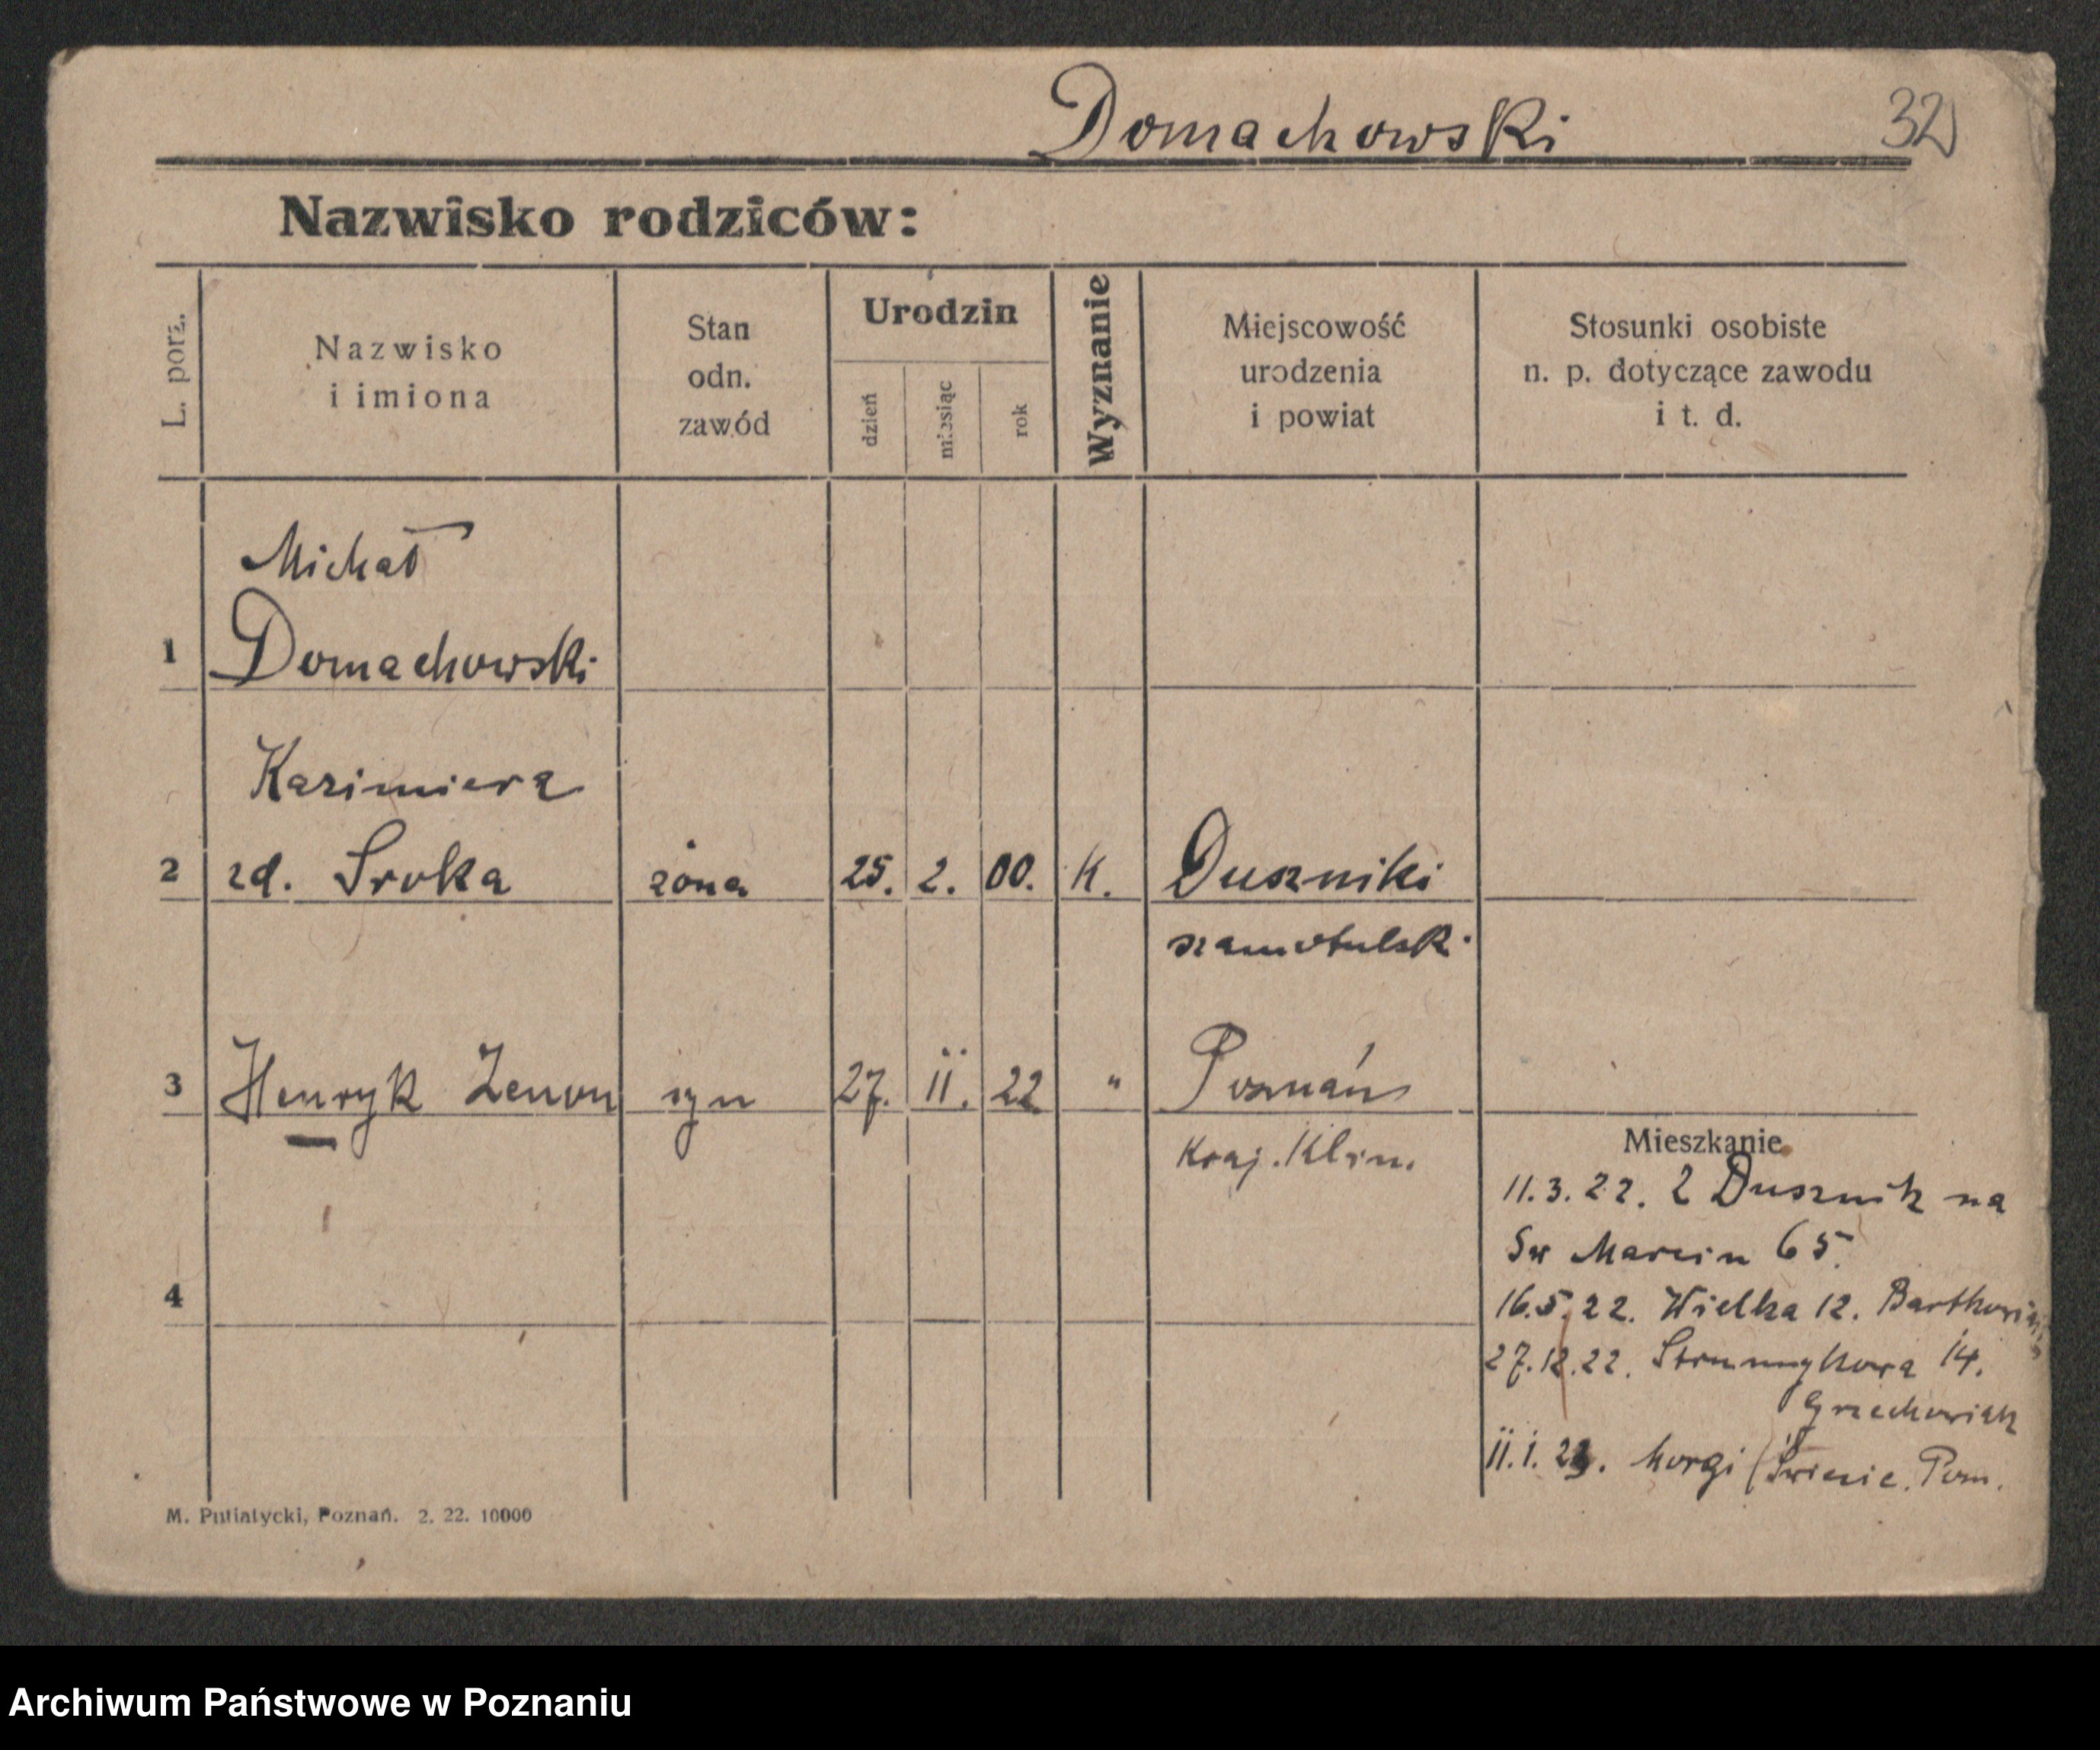 Domachowski 32
Nazwisko rodziców:
L. porz.
Nazwisko
i imiona
Stan
odn.
zawód
Urodzin
dzień
miesiąc
rok
Wyznanie
Miejscowość
urodzenia
i powiat
Stosunki osobiste
n. p. dotyczące zawodu
i t. d.
Michał
1 Domachowski
Kazimiera
2 zd. Sroka żona 25. 2. 00. K. Duszniki
szamotulsk.
3 Henryk Zenon syn 27. 11. 22 " Poznań
Kraj. Klin.
Mieszkanie
11.3.22. Z Dusznik na
Sw Marcin 65.
4
16.5.22. Wielka 12.
27.12.22. Strumykowa 14.
Grzechowiak
11.1.23. Morgi (Świecie. Pom.
M. Putiatycki, Poznań. 2. 22. 10000
Archiwum Państwowe w Poznaniu